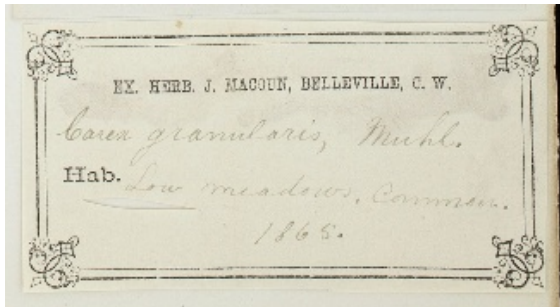 EX. HERB. J. MACOUN, BELLEVILLE, C. W.
Carex granularis, Muhl.
Hab. Low meadows. Common.
1865.